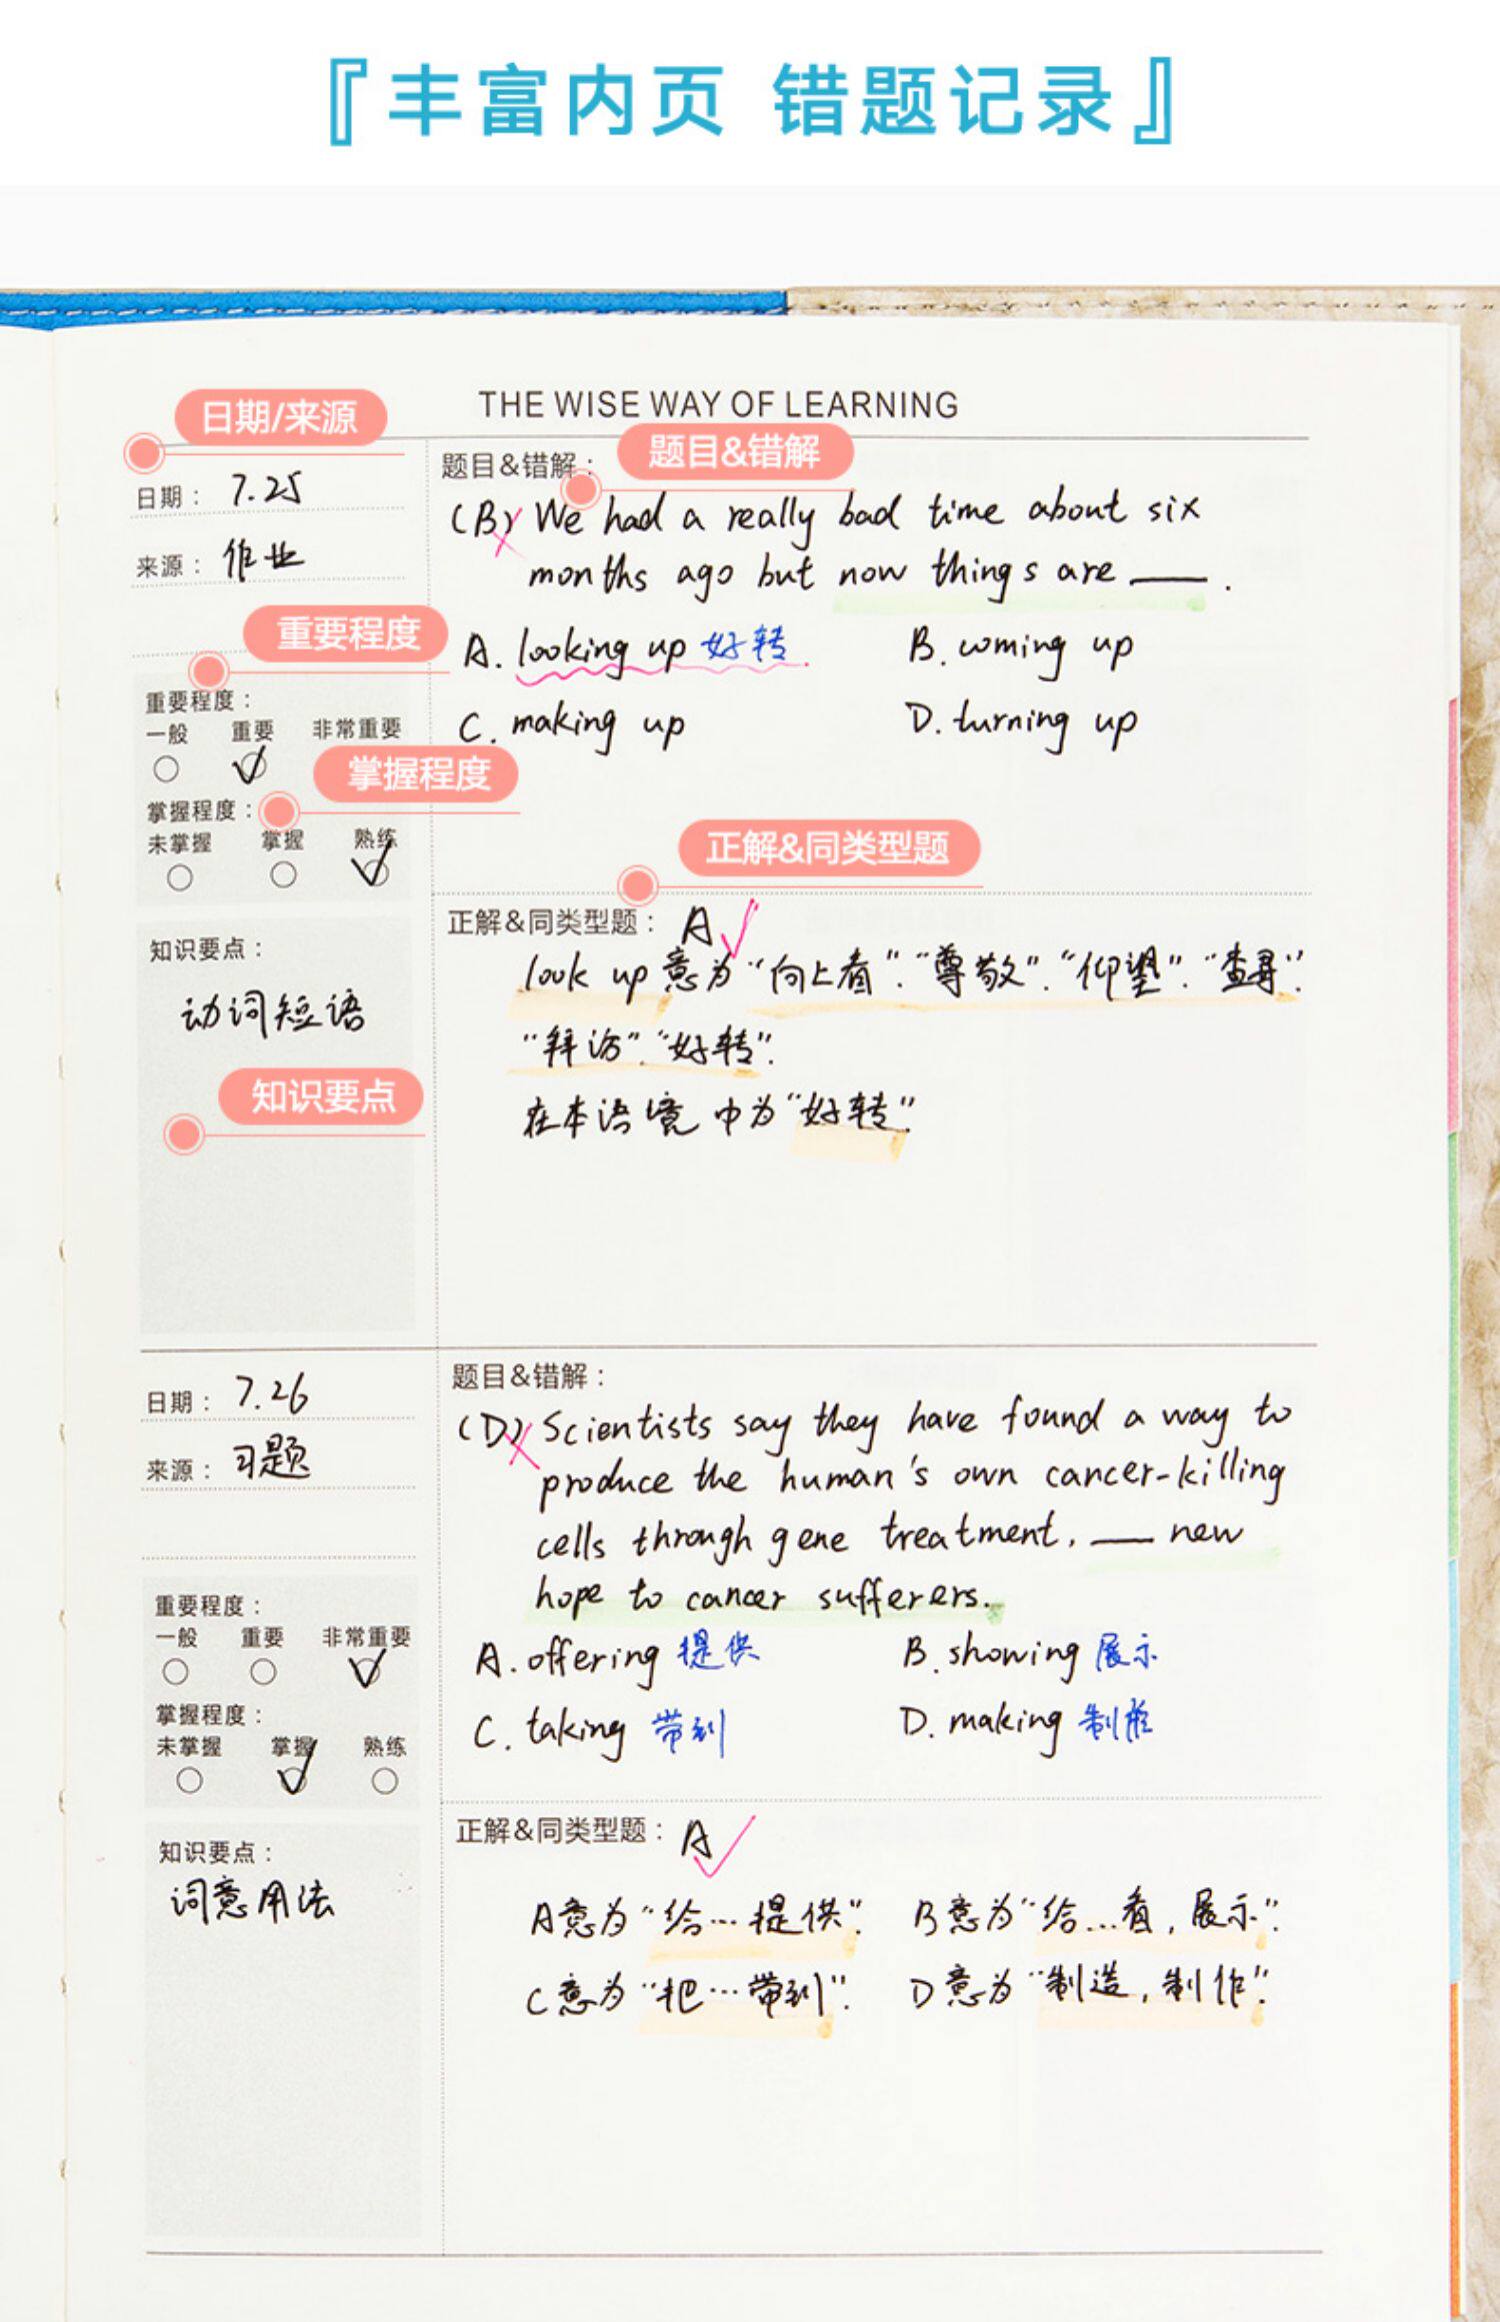 『丰富内页 错题记录』
THE WISE WAY OF LEARNING
日期/来源
日期： 7.25
来源： 作业
重要程度
重要程度：
一般 重要 非常重要
掌握程度
掌握程度：
未掌握 掌握 熟练
知识要点：
动词短语
知识要点
题目&错解： 题目&错解
(B) We had a really bad time about six
months ago but now things are ___ .
A. looking up 好转 B. coming up
C. making up D. turning up
正解&同类型题
正解&同类型题： A
look up 意为“向上看”.“尊敬”.“仰望”.“查寻”.
“拜访”.“好转”.
在本语境中为“好转”.
日期： 7.26
来源： 习题
重要程度：
一般 重要 非常重要
掌握程度：
未掌握 掌握 熟练
知识要点：
词意用法
题目&错解：
(D) Scientists say they have found a way to
produce the human's own cancer-killing
cells through gene treatment, ___ new
hope to cancer sufferers.
A. offering 提供 B. showing 展示
C. taking 带到 D. making 制作
正解&同类型题： A
A意为“给…提供”. B意为“给…看，展示”.
C意为“把…带到”. D意为“制造，制作”.